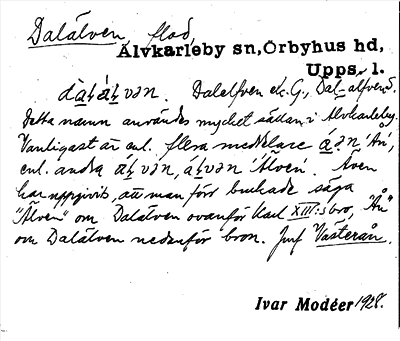 Dalälven, flod,
Älvkarleby sn, Örbyhus hd,
Upps. l.
Dalelfven ek. G., Dal-elfven S.
Detta namn användes mycket sällan i Älvkarleby.
Vanligast är enl. flera meddelare 'Ån',
enl. andra 'Älven'. Även
har uppgivits, att man förr brukade säga
"Älven" om Dalälven ovanför Karl XIII:s bro, "Ån"
om Dalälven nedanför bron. Jmf Västerån.
Ivar Modéer 1928.